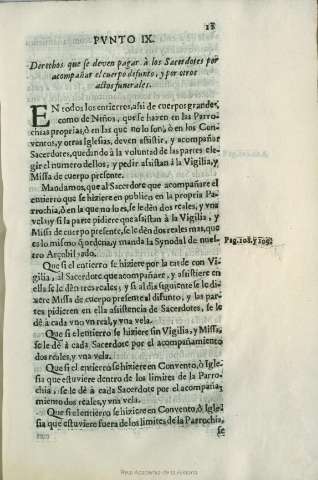 18
PVNTO IX.
Derechos que se deven pagar à los Sacerdotes por
acompañar el cuerpo difunto, y por otros
actos funerales.
EN todos los entierros, assi de cuerpos grandes,
como de Niños, que se hazen en las Parro-
chias proprias, ò en las que no lo son, ò en los Con-
ventos, y otras Iglesias, deven assistir, y acompañar
Sacerdotes, quedando à la voluntad de las partes ele-
gir el numero dellos, y pedir assistan à la Vigilia, y
Missa de cuerpo presente.
Mandamos, que al Sacerdote que acompañare el
entierro que se hiziere en publico en la propria Pa-
rrochia, ò en la que no lo es, se le dèn dos reales, y vna
vela; y si la parte pidiere que assistan à la Vigilia, y
Missa de cuerpo presente, se le dèn dos reales mas, que
es lo mismo q̃ ordena, y manda la Synodal de nues-
tro Arçobispado.
Pag. 108. y 109.
Que si el entierro se hiziere por la tarde con Vi-
gilia, al Sacerdote que acompañare, y assistiere en
ella se le dèn tres reales; y si al dia siguiente se le di-
xere Missa de cuerpo presente al difunto, y las par-
tes pidieren en ella assistencia de Sacerdotes, se le
dè à cada vno vn real, y vna vela.
Que si el entierro se hiziere sin Vigilia, y Missa,
se le dè à cada Sacerdote por el acompañamiento
dos reales, y vna vela.
Que si el entierro se hiziere en Convento, ò Igle-
sia que estuviere dentro de los limites de la Parro-
chia, se le dè à cada Sacerdote por el acompaña-
miento dos reales, y vna vela.
Que si el entierro se hiziere en Convento, ò Igle-
sia que estuviere fuera de los limites de la Parrochia,
se
Real Academia de la Historia